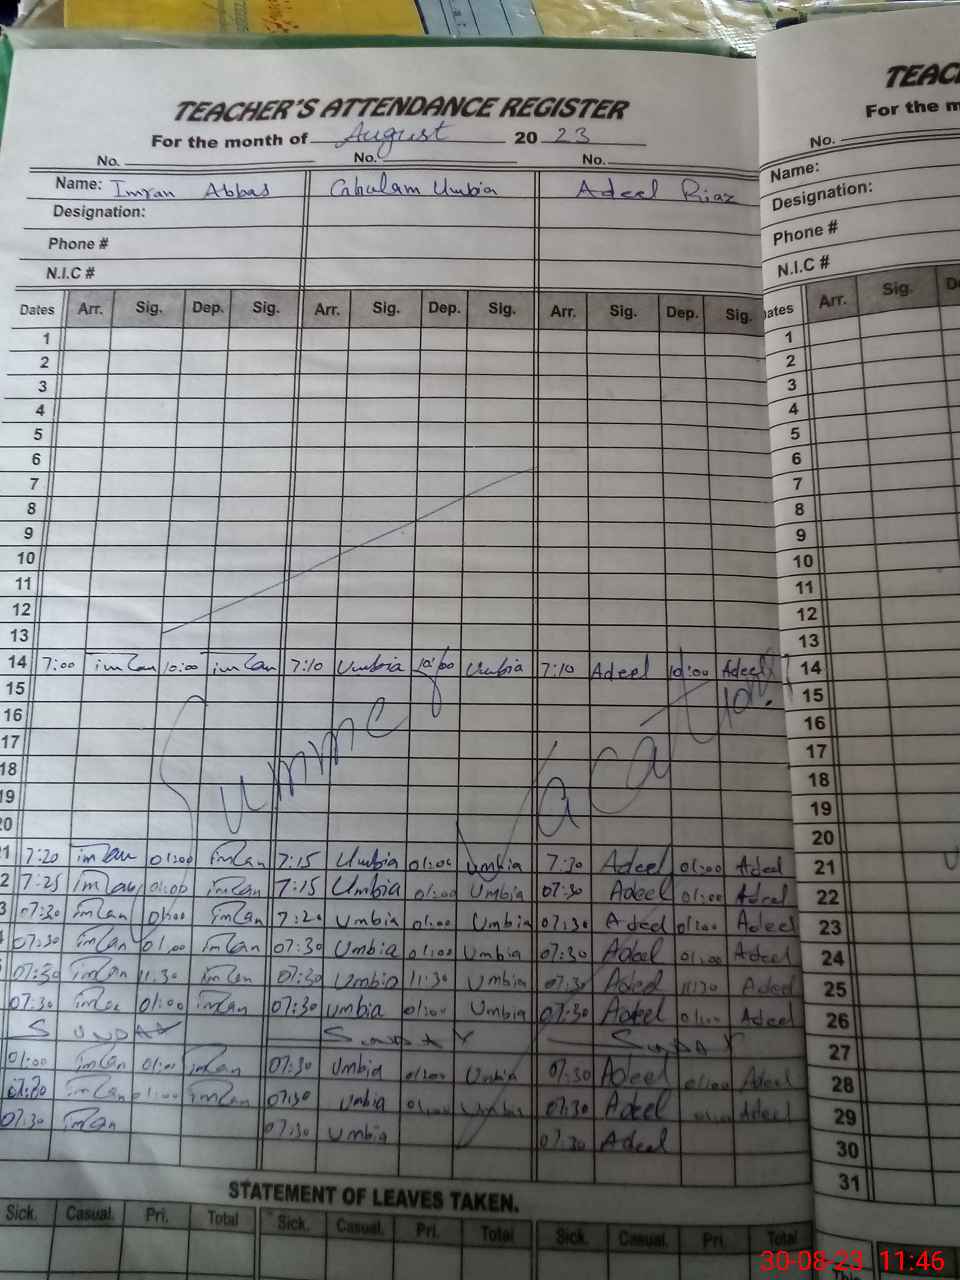 TEACHER'S ATTENDANCE REGISTER TEAC
For the month of August 20 23 For the m
No. No. No. No.
Name: Imran Abbas Cahulam Umbia Adeel Riaz Name:
Designation: Designation:
Phone # Phone #
N.I.C # N.I.C #
Dates Arr. Sig. Dep. Sig. Arr. Sig. Dep. Sig. Arr. Sig. Dep. Sig. ates Arr. Sig. D
1 1
2 2
3 3
4 4
5 5
6 6
7 7
8 8
9 9
10 10
11 11
12 12
13 13
14 7:00 imran 10:00 imran 7:10 Umbia 10:00 Umbia 7:10 Adeel 10:00 Adeel 14
15 15
16 16
17 Summer Vacation. 17
18 18
19 19
20 20
1 7:20 imran 01:00 imran 7:15 Umbia 01:00 Umbia 7:30 Adeel 01:00 Adeel 21
2 7:25 imran 01:00 imran 7:15 Umbia 01:00 Umbia 07:30 Adeel 01:00 Adeel 22
3 07:30 imran 01:00 imran 7:20 Umbia 01:00 Umbia 07:30 Adeel 01:00 Adeel 23
07:30 imran 01:00 imran 07:30 Umbia 01:00 Umbia 07:30 Adeel 01:00 Adeel 24
07:30 imran 11:30 imran 07:30 Umbia 11:30 Umbia 07:30 Adeel 11:30 Adeel 25
07:30 imran 01:00 imran 07:30 umbia 01:00 Umbia 07:30 Adeel 01:00 Adeel 26
SUNDAY SUNDAY SUNDAY 27
01:00 imran 01:00 imran 07:30 Umbia 01:00 Umbia 07:30 Adeel 01:00 Adeel 28
imran 01:00 imran 07:30 Umbia 01:00 Umbia 07:30 Adeel Adeel 29
07:30 imran 07:30 Umbia 07:30 Adeel 30
31
STATEMENT OF LEAVES TAKEN.
Sick. Casual. Pri. Total Sick. Casual. Pri. Total Sick. Casual. Pri. Total
30-08-23 11:46